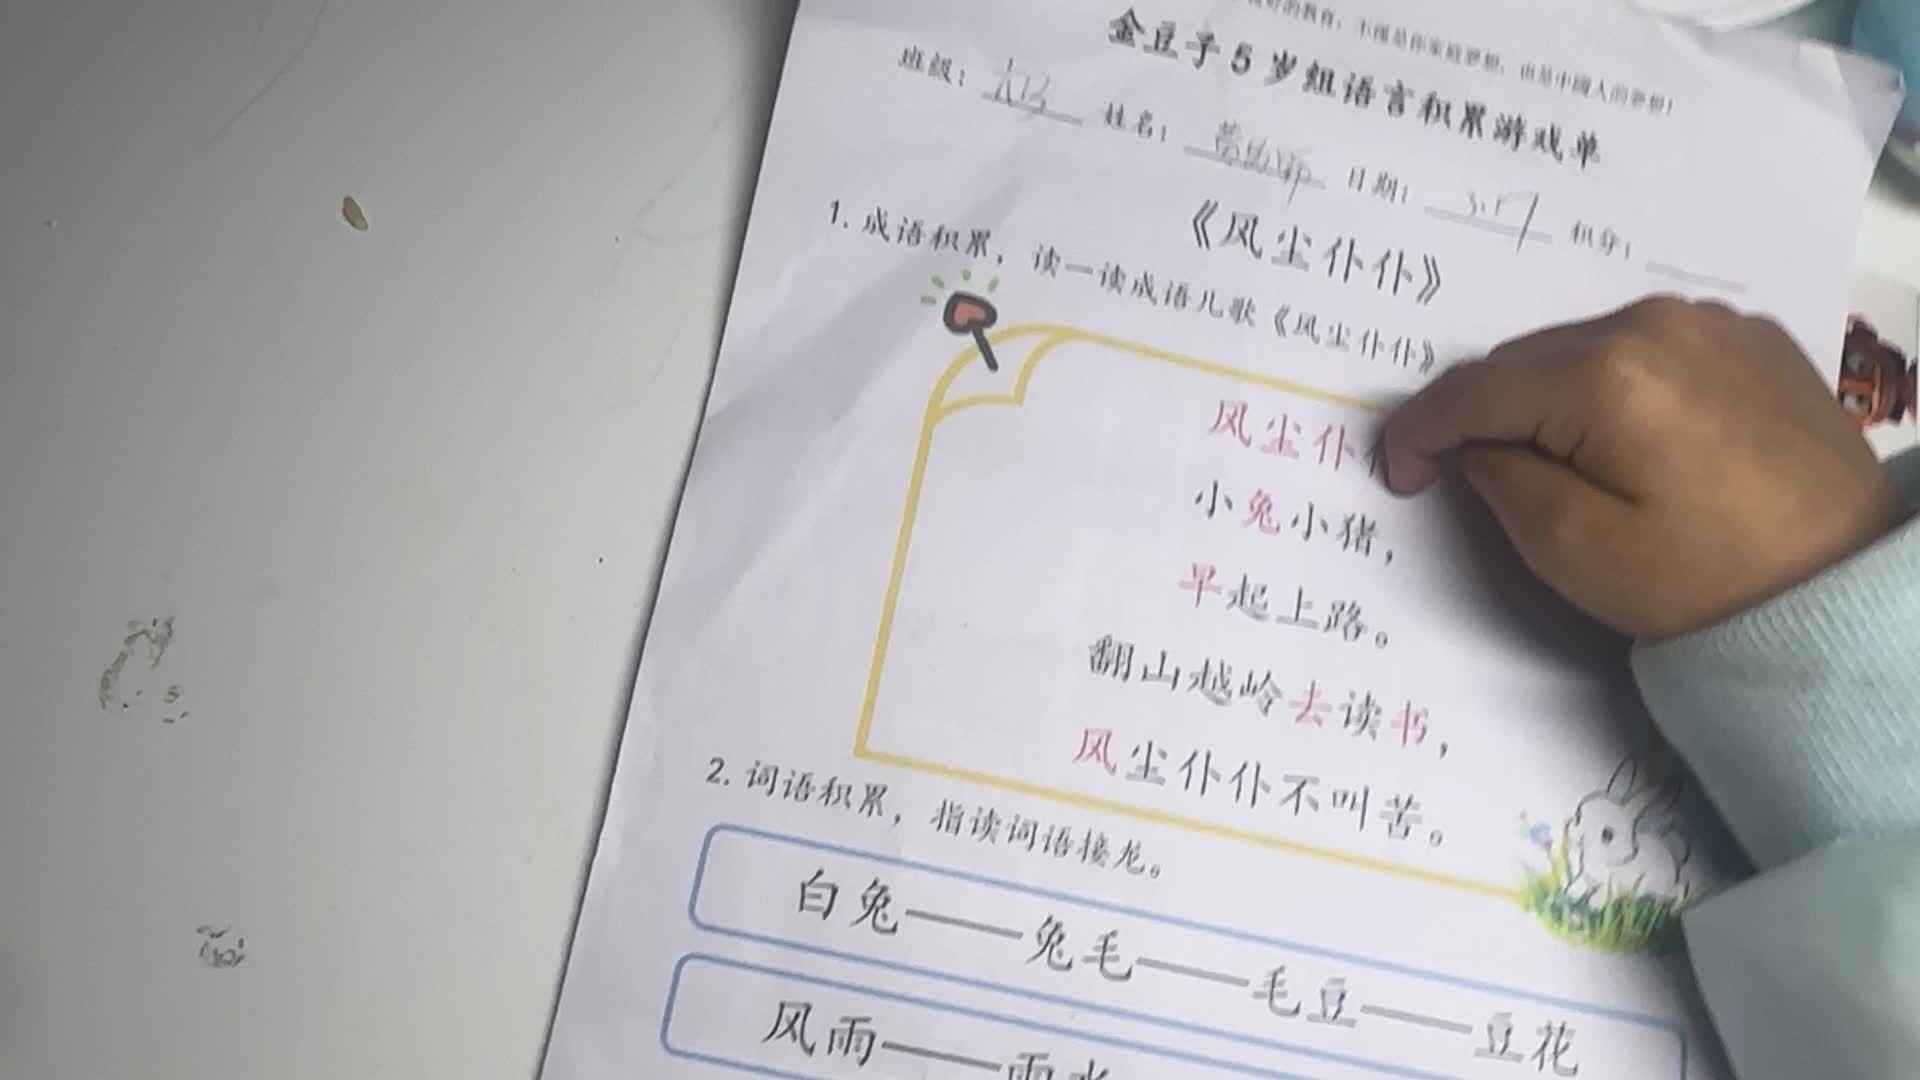 不僅是你家庭夢想，也是中國人的夢想！
金豆子5岁组语言积累游戏单
班级：大B 姓名： 日期： 积分：
《风尘仆仆》
1. 成语积累，读一读成语儿歌《风尘仆仆》
风尘仆
小兔小猪，
早起上路。
翻山越岭去读书，
风尘仆仆不叫苦。
2. 词语积累，指读词语接龙。
白兔——兔毛——毛豆——豆花
风雨——雨水